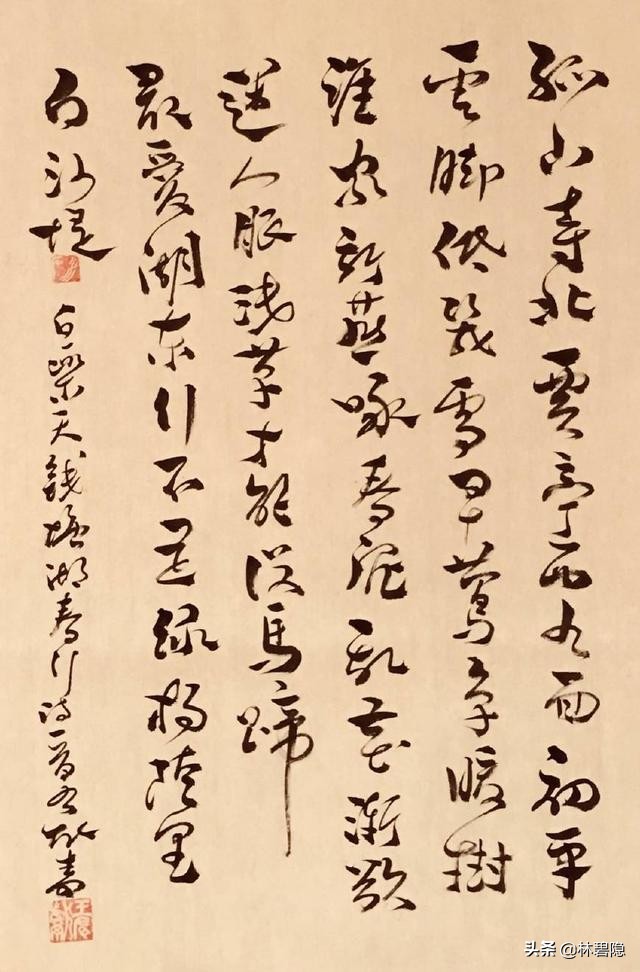 孤山寺北賈亭西水面初平
雲脚低幾處早鶯爭暖樹
誰家新燕啄春泥乱花漸欲
迷人眼浅草才能没馬蹄
最愛湖东行不足緑楊陰里
白沙堤
白樂天錢塘湖春行詩一首
头条 @林碧隐